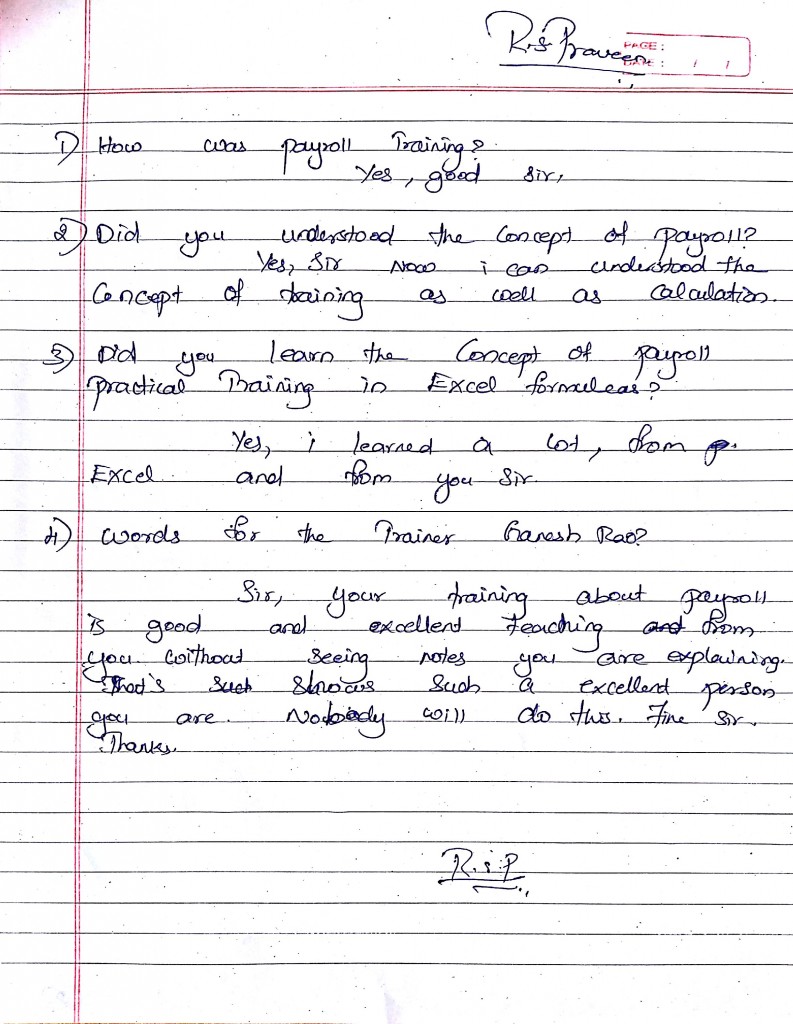 R.S Praveen
PAGE :
DATE : / /
1) How was payroll Training?
Yes, good Sir,
2) Did you understood the Concept of payroll?
Yes, Sir Now i can understood the
Concept of training as well as calculation.
3) Did you learn the Concept of payroll
practical Training in Excel formuleas?
Yes, i learned a lot, from
Excel and from you Sir.
4) words for the Trainer Ganesh Rao?
Sir, your training about payroll
is good and excellent teaching and from
you. Without seeing notes you are explaining.
That's such shows such a excellent person
you are. Nobody will do this. Fine Sir.
Thanks.
R.S.P